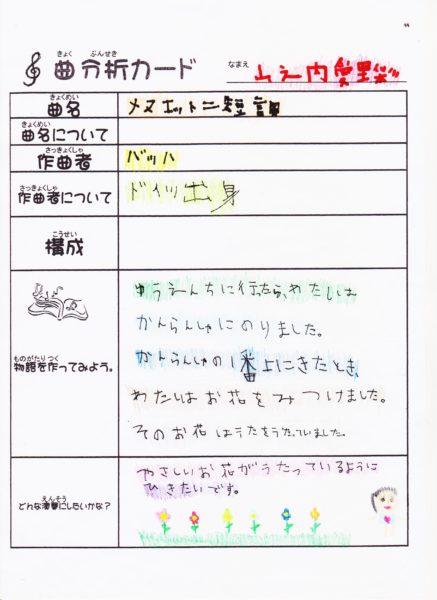 きょく ぶんせき
曲分析カード
なまえ
山之内愛里紗
きょくめい
曲名
メヌエットニ短調
きょくめい
曲名について
さっきょくしゃ
作曲者
バッハ
さっきょくしゃ
作曲者について
ドイツ出身
こうせい
構成
ものがたり つく
物語を作ってみよう。
ゆうえんちに行ったら、わたしは
かんらんしゃにのりました。
かんらんしゃの1番上にきたとき、
わたしはお花をみつけました。
そのお花はうたをうたっていました。
えんそう
どんな演奏にしたいかな?
やさしいお花がうたっているように
ひきたいです。